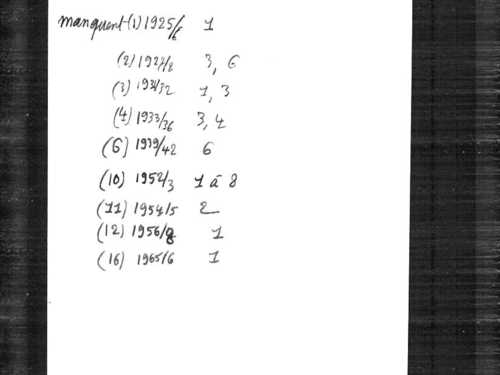 manquent (1) 1925/6 1
(2) 1927/8 3, 6
(3) 1931/32 1, 3
(4) 1933/36 3, 4
(6) 1939/42 6
(10) 1952/3 1 à 8
(11) 1954/5 2
(12) 1956/8 1
(16) 1965/6 1